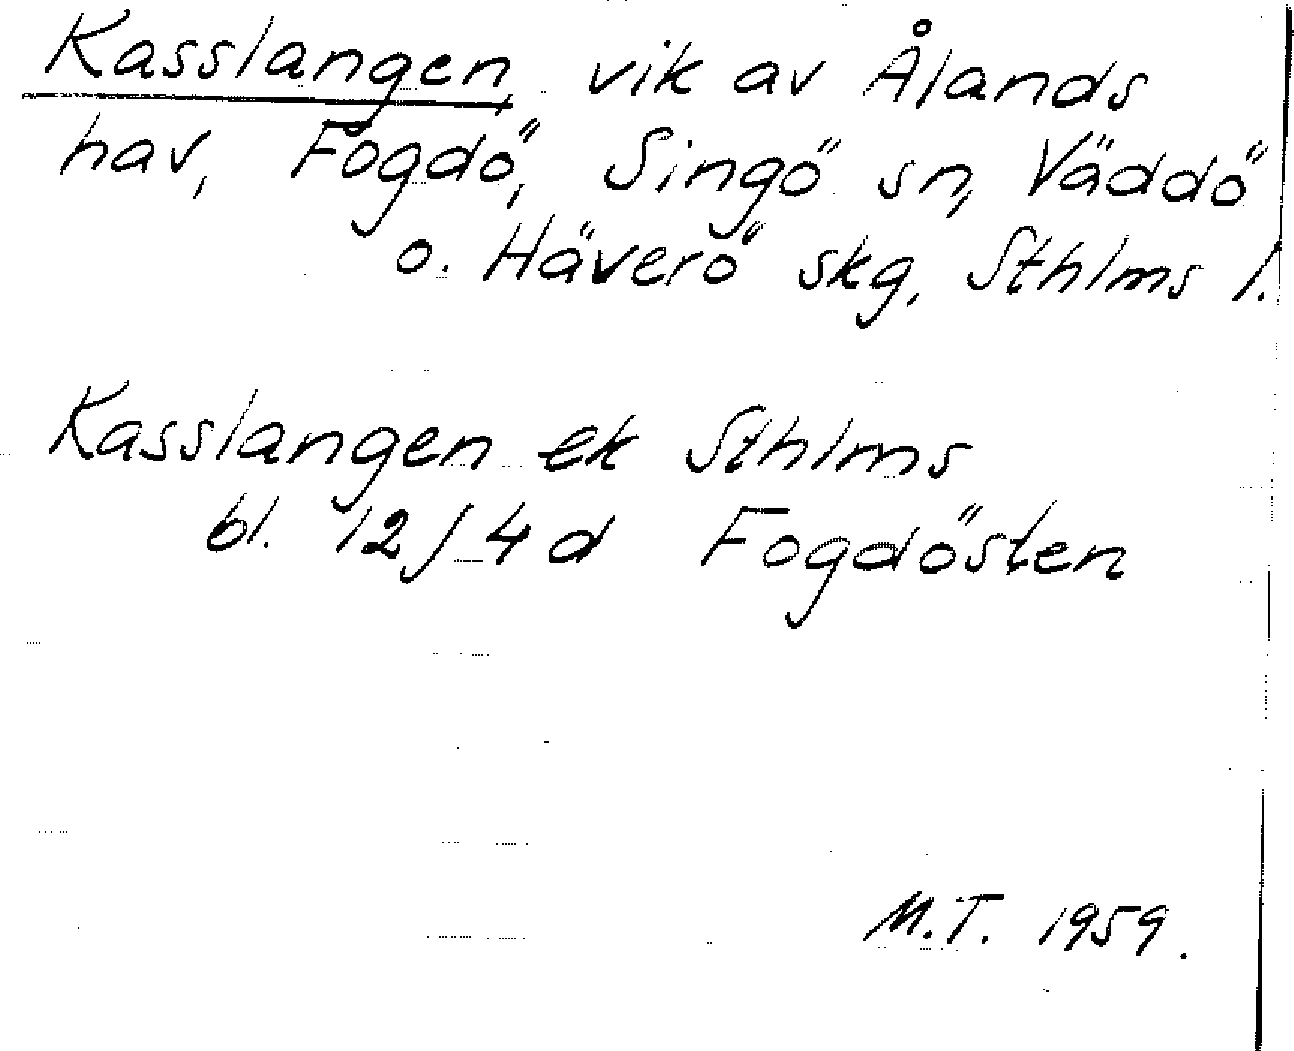 Kasslangen, vik av Ålands
hav, Fogdö, Singö sn, Väddö
o. Häverö skg, Sthlms l.
Kasslangen ek Sthlms
bl. 12/4d Fogdösten
M.T. 1959.